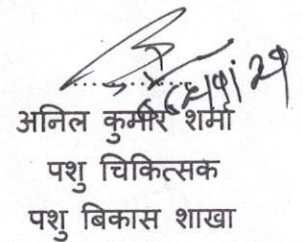 अनिल कुमार शर्मा
पशु चिकित्सक
पशु बिकास शाखा